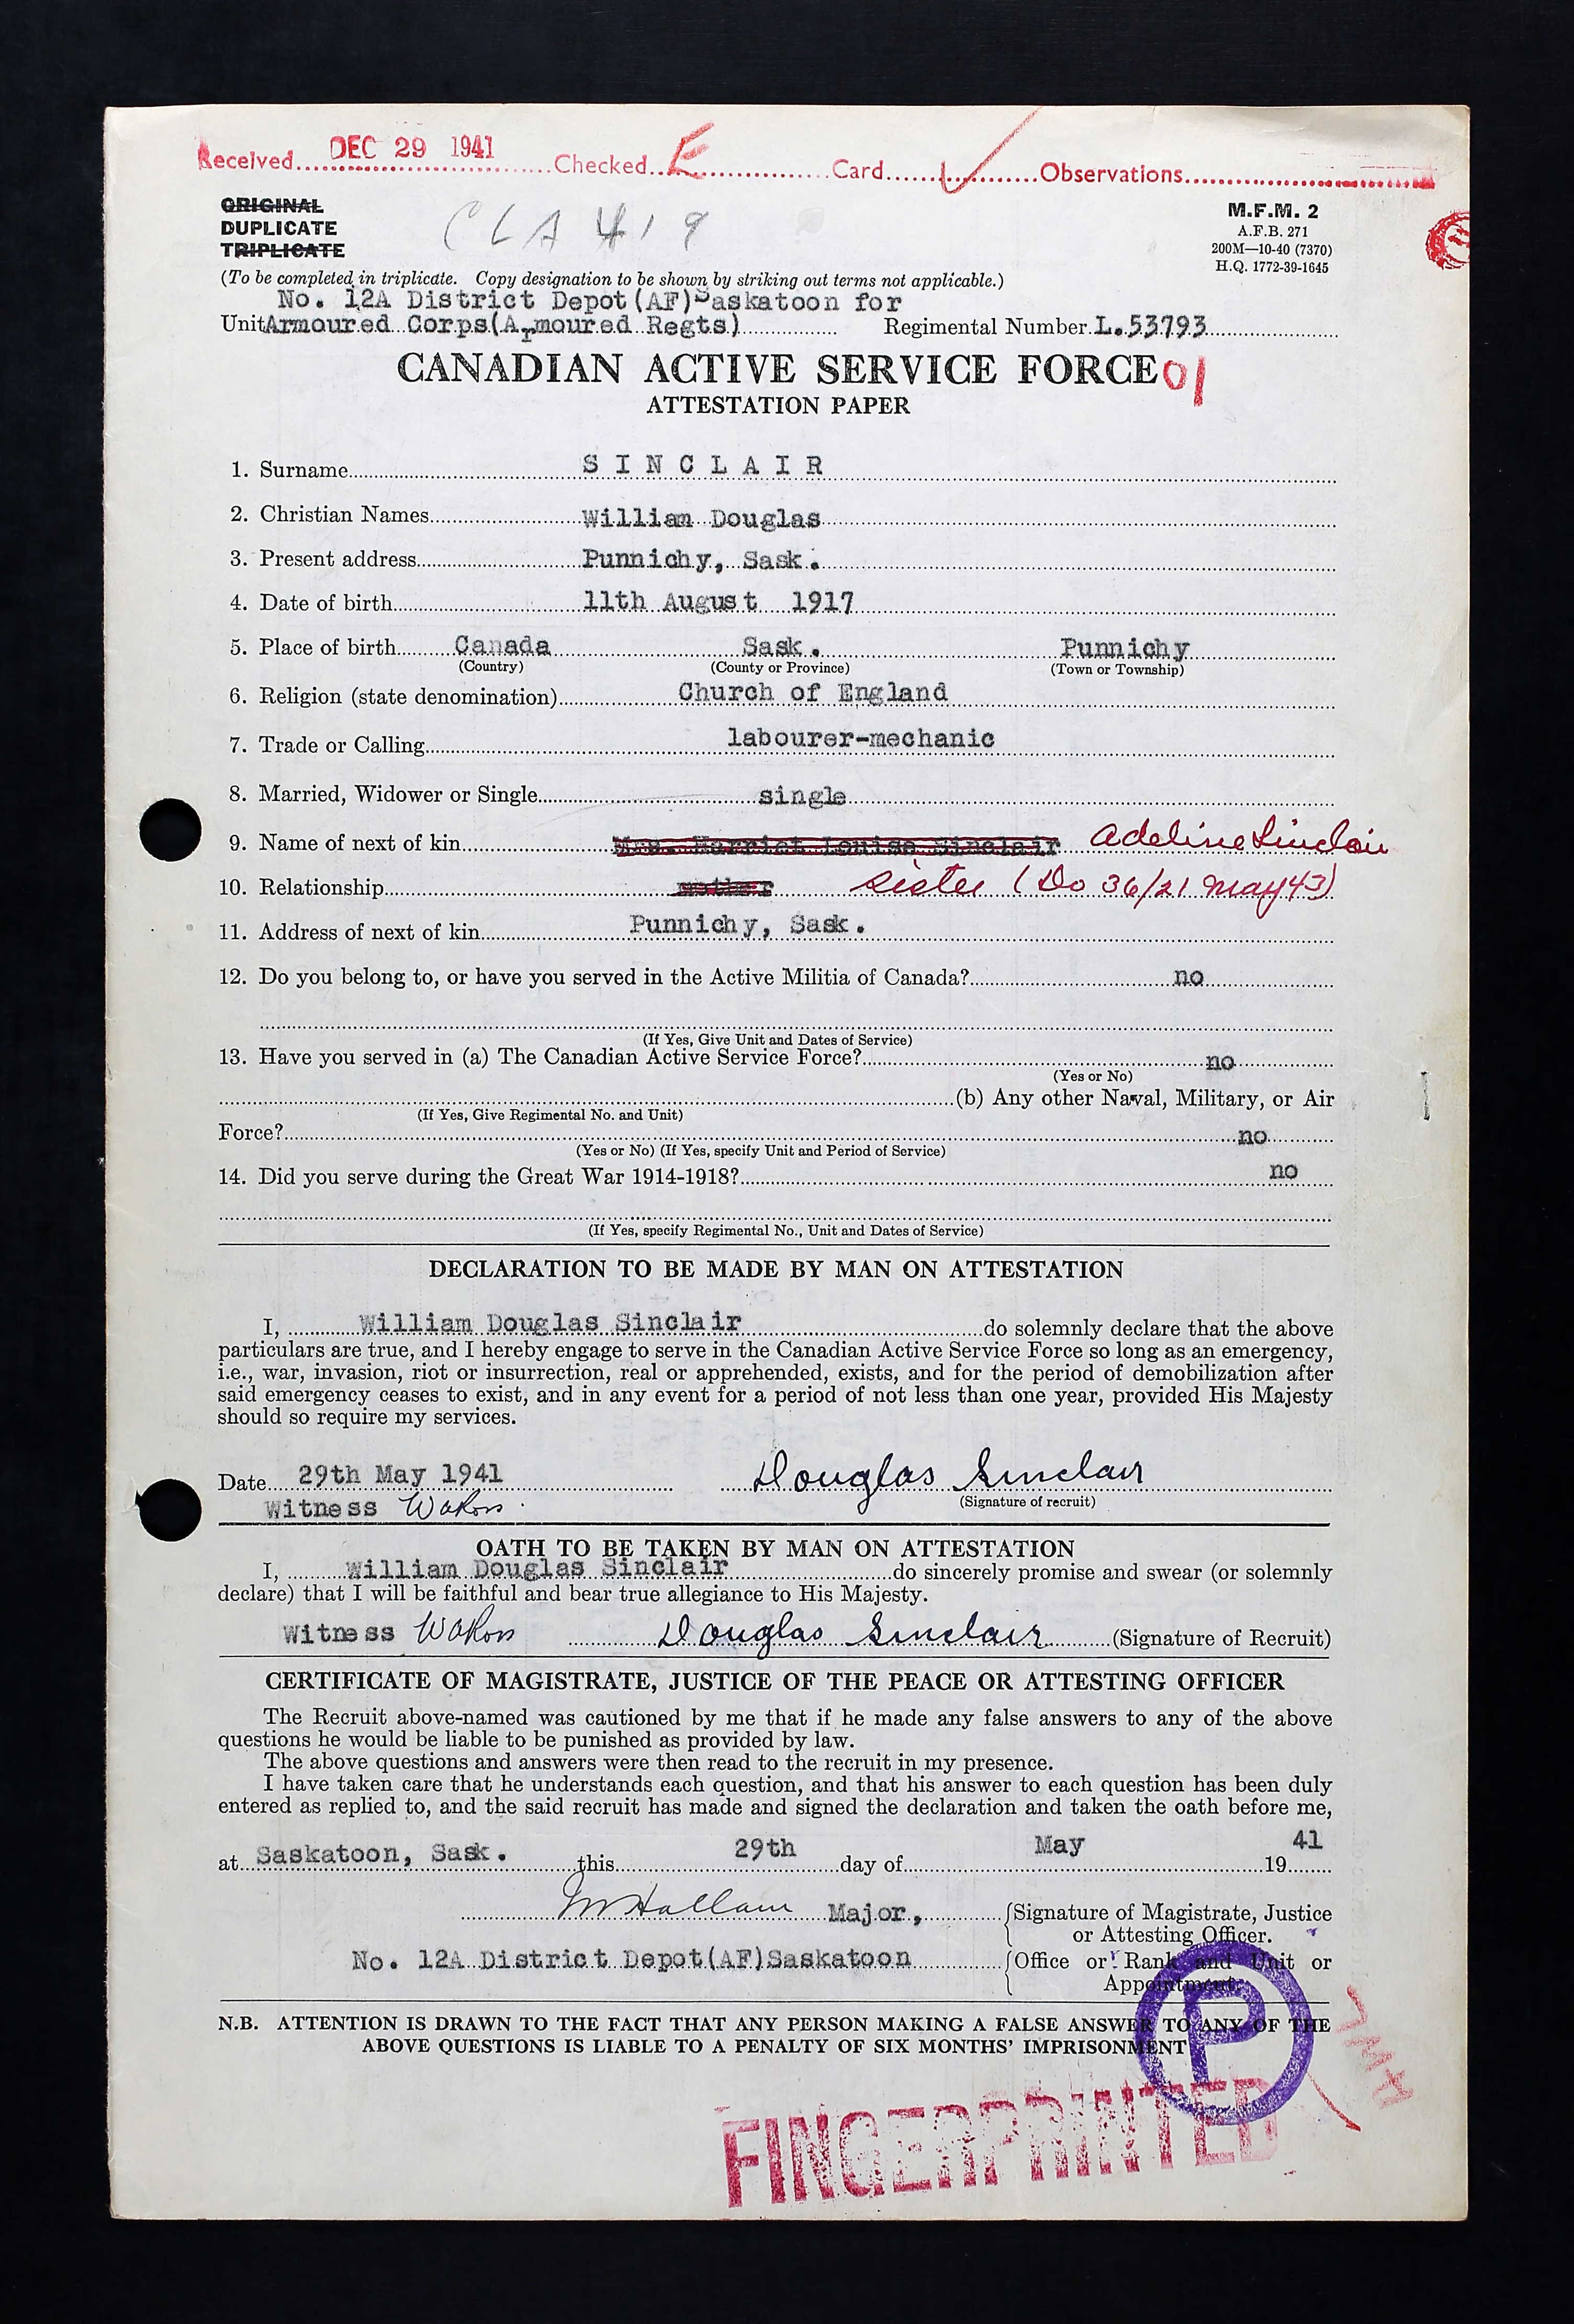 Received.... DEC 29 1941 ....Checked.. E ....Card.... ....Observations....
ORIGINAL
DUPLICATE
TRIPLICATE
CLA 419
M.F.M. 2
A.F.B. 271
200M—10-40 (7370)
H.Q. 1772-39-1645
(To be completed in triplicate. Copy designation to be shown by striking out terms not applicable.)
No. 12A District Depot(AF)Saskatoon for
Unit Armoured Corps(Armoured Regts) Regimental Number L.53793
CANADIAN ACTIVE SERVICE FORCE 01
ATTESTATION PAPER
1. Surname S I N C L A I R
2. Christian Names William Douglas
3. Present address Punnichy, Sask.
4. Date of birth 11th August 1917
5. Place of birth Canada Sask. Punnichy
(Country) (County or Province) (Town or Township)
6. Religion (state denomination) Church of England
7. Trade or Calling labourer-mechanic
8. Married, Widower or Single single
9. Name of next of kin Mrs. Harriet Louise Sinclair Adeline Sinclair
10. Relationship mother sister (Do 36/21 May 43)
11. Address of next of kin Punnichy, Sask.
12. Do you belong to, or have you served in the Active Militia of Canada? no
(If Yes, Give Unit and Dates of Service)
13. Have you served in (a) The Canadian Active Service Force? no
(Yes or No)
(b) Any other Naval, Military, or Air
(If Yes, Give Regimental No. and Unit)
Force? no
(Yes or No) (If Yes, specify Unit and Period of Service)
14. Did you serve during the Great War 1914-1918? no
(If Yes, specify Regimental No., Unit and Dates of Service)
DECLARATION TO BE MADE BY MAN ON ATTESTATION
I, William Douglas Sinclair do solemnly declare that the above
particulars are true, and I hereby engage to serve in the Canadian Active Service Force so long as an emergency,
i.e., war, invasion, riot or insurrection, real or apprehended, exists, and for the period of demobilization after
said emergency ceases to exist, and in any event for a period of not less than one year, provided His Majesty
should so require my services.
Date 29th May 1941 Douglas Sinclair
Witness (Signature of recruit)
OATH TO BE TAKEN BY MAN ON ATTESTATION
I, William Douglas Sinclair do sincerely promise and swear (or solemnly
declare) that I will be faithful and bear true allegiance to His Majesty.
Witness Douglas Sinclair (Signature of Recruit)
CERTIFICATE OF MAGISTRATE, JUSTICE OF THE PEACE OR ATTESTING OFFICER
The Recruit above-named was cautioned by me that if he made any false answers to any of the above
questions he would be liable to be punished as provided by law.
The above questions and answers were then read to the recruit in my presence.
I have taken care that he understands each question, and that his answer to each question has been duly
entered as replied to, and the said recruit has made and signed the declaration and taken the oath before me,
at Saskatoon, Sask. this 29th day of May 19 41
Hallam Major, Signature of Magistrate, Justice
or Attesting Officer.
No. 12A District Depot(AF)Saskatoon Office or Rank and Unit or
Appointment
N.B. ATTENTION IS DRAWN TO THE FACT THAT ANY PERSON MAKING A FALSE ANSWER TO ANY OF THE
ABOVE QUESTIONS IS LIABLE TO A PENALTY OF SIX MONTHS' IMPRISONMENT
P
FINGERPRINTED